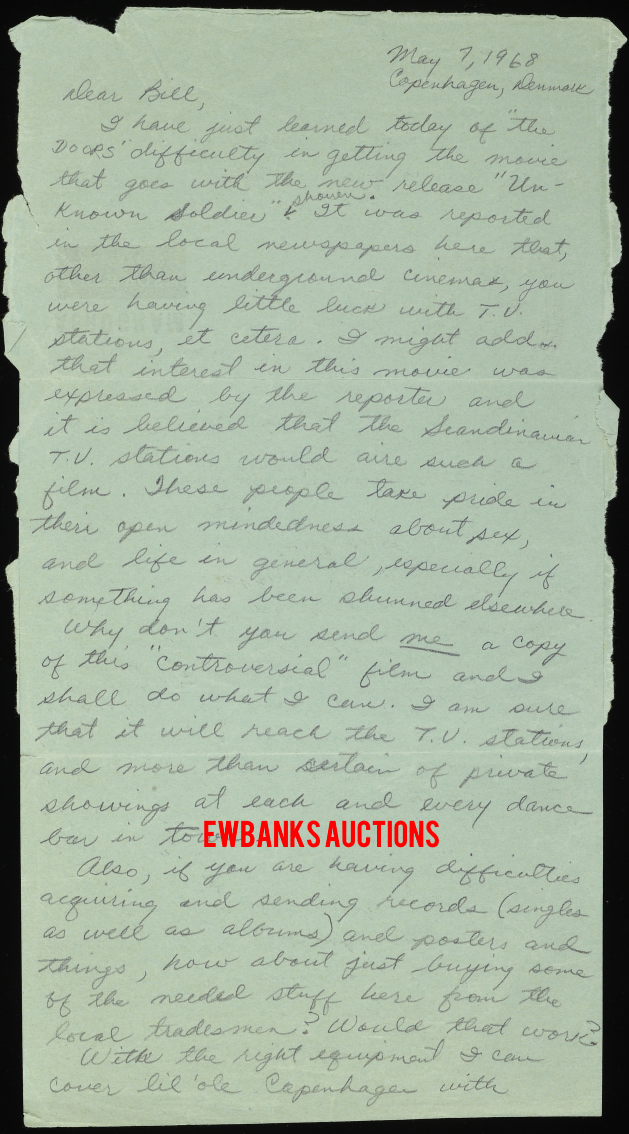 May 7, 1968
Copenhagen, Denmark
Dear Bill,
I have just learned today of "the
DOORS" difficulty in getting the movie
that goes with the new release "Un-
Known Soldier" shown. It was reported
in the local newspapers here that,
other than underground cinemas, you
were having little luck with T.V.
stations, et cetera. I might add
that interest in this movie was
expressed by the reporter and
it is believed that the Scandinavian
T.V. stations would aire such a
film. These people take pride in
theri open mindedness about sex,
and life in general, especially if
something has been shunned elsewhere.
Why don't you send me a copy
of this "controversial" film and I
shall do what I can. I am sure
that it will reach the T.V. stations,
and more than certain of private
showings at each and every dance
bar in
EWBANKS AUCTIONS
Also, if you are having difficulties
acquiring and sending records (singles
as well as albums) and posters and
things, how about just buying some
of the needed stuff here from the
local tradesmen? Would that work?
With the right equipment I can
cover lil 'ole Copenhagen with